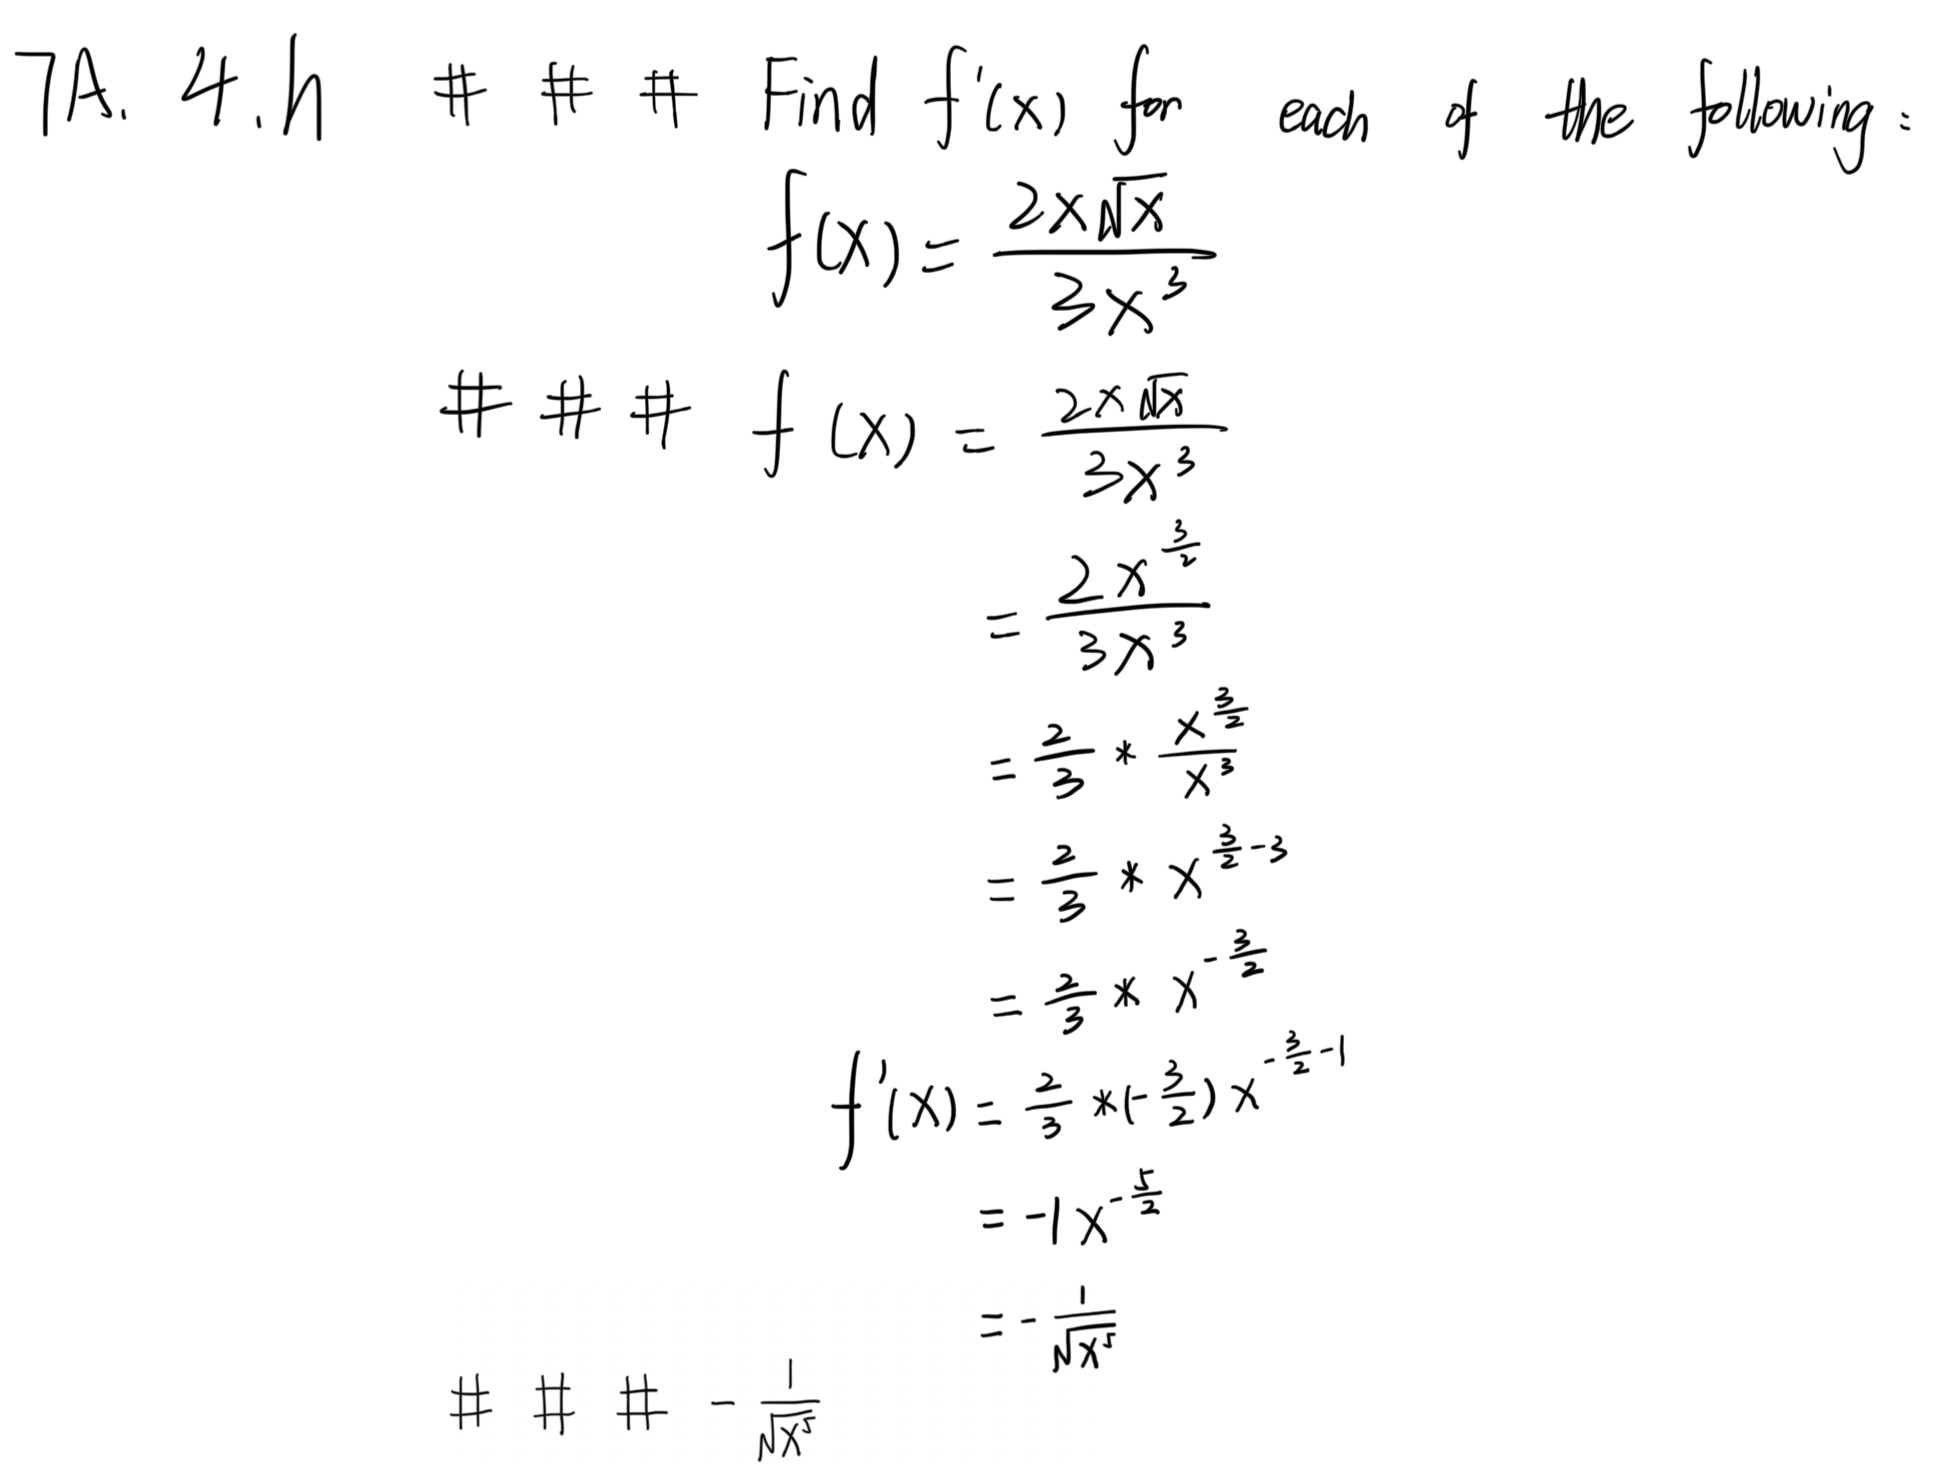 7A. 4.h # # # Find f'(x) for each of the following:
f(x) = \frac{2x\sqrt{x}}{3x^3}
# # # f(x) = \frac{2x\sqrt{x}}{3x^3}
= \frac{2x^{\frac{3}{2}}}{3x^3}
= \frac{2}{3} * \frac{x^{\frac{3}{2}}}{x^3}
= \frac{2}{3} * x^{\frac{3}{2}-3}
= \frac{2}{3} * x^{-\frac{3}{2}}
f'(x) = \frac{2}{3} * (-\frac{3}{2}) x^{-\frac{3}{2}-1}
= -1x^{-\frac{5}{2}}
= -\frac{1}{\sqrt{x^5}}
# # # -\frac{1}{\sqrt{x^5}}